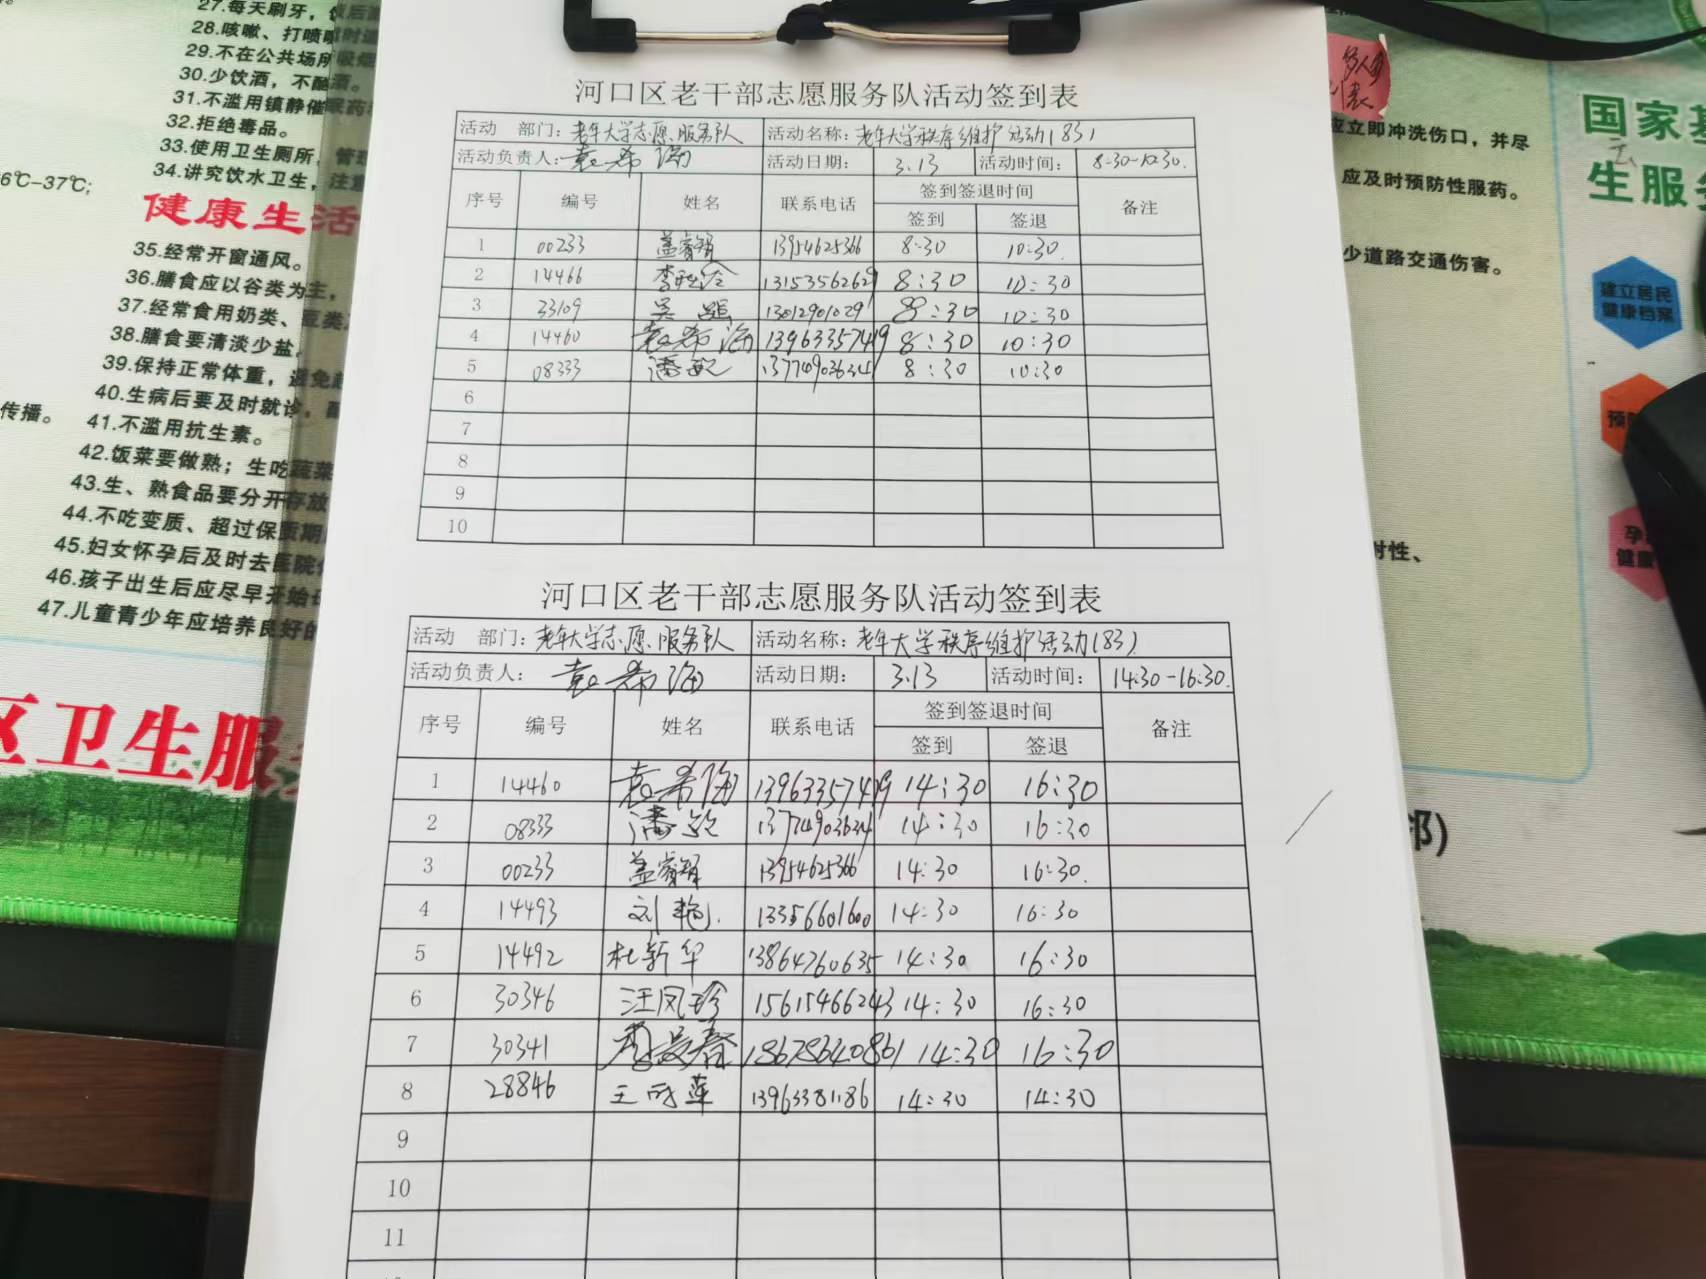 27.每天刷牙，饭后
28.咳嗽、打喷嚏时
29.不在公共场所吸烟
30.少饮酒，不酗酒。
31.不滥用镇静催眠药
32.拒绝毒品。
33.使用卫生厕所，管理
34.讲究饮水卫生，注重
6℃-37℃;
健康生活
35.经常开窗通风。
36.膳食应以谷类为主，
37.经常食用奶类、豆类
38.膳食要清淡少盐，
39.保持正常体重，避免超
40.生病后要及时就诊，配
传播。
41.不滥用抗生素。
42.饭菜要做熟；生吃蔬菜
43.生、熟食品要分开存放
44.不吃变质、超过保质期
45.妇女怀孕后及时去医院
46.孩子出生后应尽早开始母
47.儿童青少年应培养良好的
区卫生服
河口区老干部志愿服务队活动签到表
活动 部门：老年大学志愿服务队 活动名称：老年大学秩序维护活动(83)
活动负责人：袁希海 活动日期： 3.13 活动时间： 8:30-10:30.
序号 编号 姓名 联系电话 签到签退时间 备注
签到 签退
1 00233 盖睿智 13954625366 8:30 10:30.
2 14466 13153562629 8:30 10:30
3 33109 吴 13012901029 8:30 10:30
4 14460 袁希海 13963357419 8:30 10:30
5 08333 潘 13774903634 8:30 10:30
6
7
8
9
10
河口区老干部志愿服务队活动签到表
活动 部门：老年大学志愿服务队 活动名称：老年大学秩序维护活动(83)
活动负责人： 袁希海 活动日期： 3.13 活动时间： 14:30-16:30.
序号 编号 姓名 联系电话 签到签退时间 备注
签到 签退
1 14460 袁希海 13963357419 14:30 16:30
2 08333 潘 13774903634 14:30 16:30
3 00233 盖睿智 13954625366 14:30 16:30.
4 14493 刘艳 13356601600 14:30 16:30
5 14492 杜新华 13864760635 14:30 16:30
6 30346 汪凤珍 15615466243 14:30 16:30
7 30341 春 18678640861 14:30 16:30
8 28846 王 莲 13963381186 14:30 14:30
9
10
11
应立即冲洗伤口，并尽
应及时预防性服药。
少道路交通伤害。
国家基
生服务
建立居民
健康档案
预防
孕
健康
射性、
部)